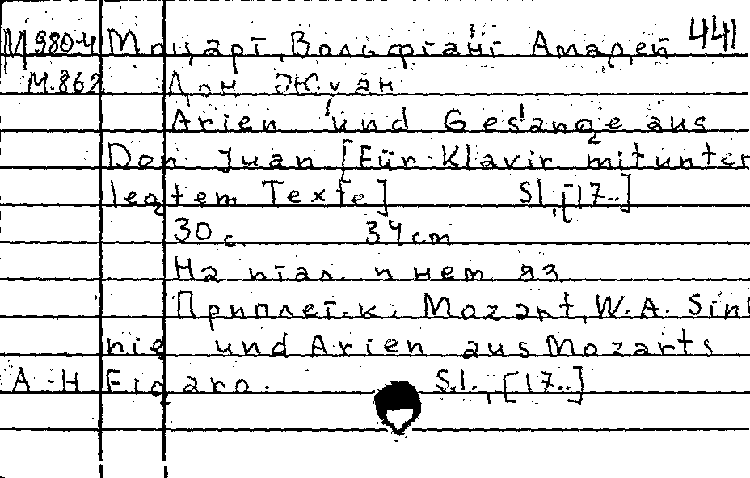 М980-4 Моцарт, Вольфганг Амадей 441
М.862 Дон Жуан
Arien und Gesänge aus
Don Juan [Für Klavir mit unter
legtem Texte] S.l., [17..]
30 с. 34 cm
На итал. и нем яз
Приплет. к: Mozart, W.A. Sinf
nie und Arien aus Mozarts
А-Н Figaro. S.l., [17..]